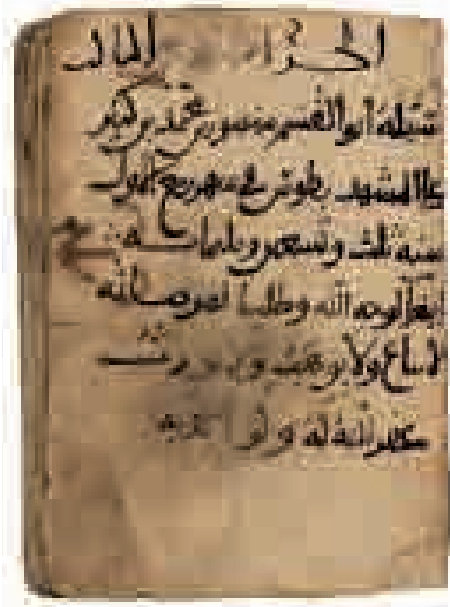 الجزء الثالث
سبله أبو القسم منصور بن محمد بن كثير
على المشهد بطوس في شهر ربيع الأول
سنة ثلث وتسعين وثلثمائة
ابتغا لوجه الله وطلبا لمرضات الله
لا يباع ولا يوهب ولا يورث
غفر الله له ولوالديه